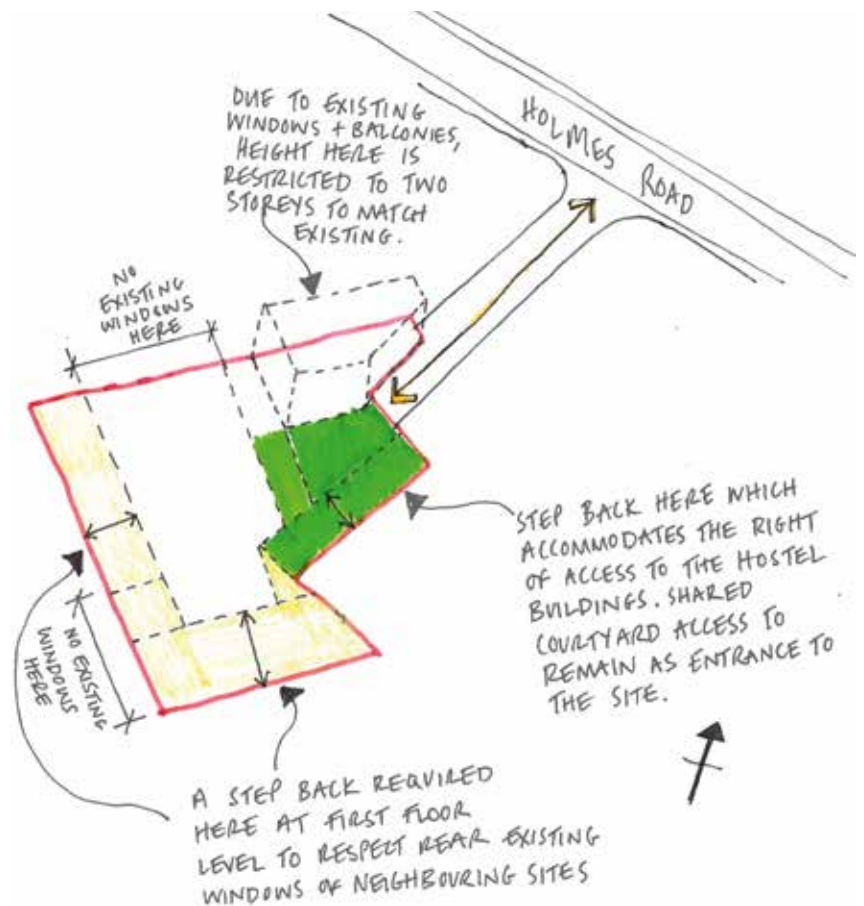 DUE TO EXISTING
WINDOWS + BALCONIES,
HEIGHT HERE IS
RESTRICTED TO TWO
STOREYS TO MATCH
EXISTING.
HOLMES ROAD
NO
EXISTING
WINDOWS
HERE
STEP BACK HERE WHICH
ACCOMMODATES THE RIGHT
OF ACCESS TO THE HOSTEL
BUILDINGS. SHARED
COURTYARD ACCESS TO
REMAIN AS ENTRANCE TO
THE SITE.
NO EXISTING
WINDOWS
HERE
A STEP BACK REQUIRED
HERE AT FIRST FLOOR
LEVEL TO RESPECT REAR EXISTING
WINDOWS OF NEIGHBOURING SITES